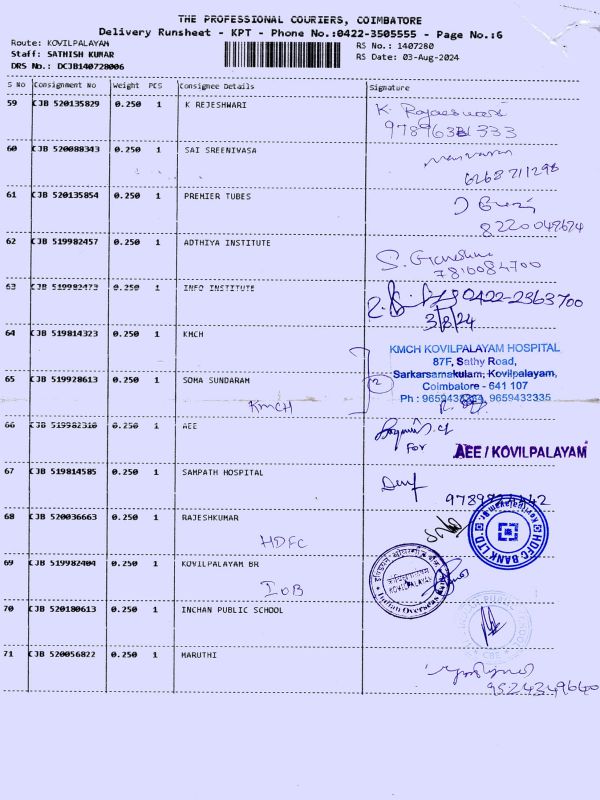 THE PROFESSIONAL COURIERS, COIMBATORE
Delivery Runsheet - KPT - Phone No.:0422-3505555 - Page No.:6
Route: KOVILPALAYAM
Staff: SATHISH KUMAR
DRS No.: DCJB140728006
RS No.: 1407280
RS Date: 03-Aug-2024
S No Consignment No Weight PCS Consignee Details Signature
59 CJB 520135829 0.250 1 K REJESHWARI K. Rajaeswari
333
60 CJB 520088343 0.250 1 SAI SREENIVASA
6268711298
61 CJB 520135854 0.250 1 PREMIER TUBES
8220049674
62 CJB 519982457 0.250 1 ADTHIYA INSTITUTE S.
7810084700
63 CJB 519982473 0.250 1 INFO INSTITUTE 0422-2363700
3/8/24
64 CJB 519814323 0.250 1 KMCH
KMCH KOVILPALAYAM HOSPITAL
87F, Sathy Road,
Sarkarsamakulam, Kovilpalayam,
Coimbatore - 641 107
Ph : 9659432334, 9659432335
65 CJB 519928613 0.250 1 SOMA SUNDARAM 2
KMCH
66 CJB 519982310 0.250 1 AEE
For AEE / KOVILPALAYAM
67 CJB 519814585 0.250 1 SAMPATH HOSPITAL
68 CJB 520036663 0.250 1 RAJESHKUMAR
HDFC
HDFC BANK LTD.
69 CJB 519982404 0.250 1 KOVILPALAYAM BR
IOB
KOVILPALAYAM
Indian Overseas
70 CJB 520180613 0.250 1 INCHAN PUBLIC SCHOOL
71 CJB 520056822 0.250 1 MARUTHI
9524349640